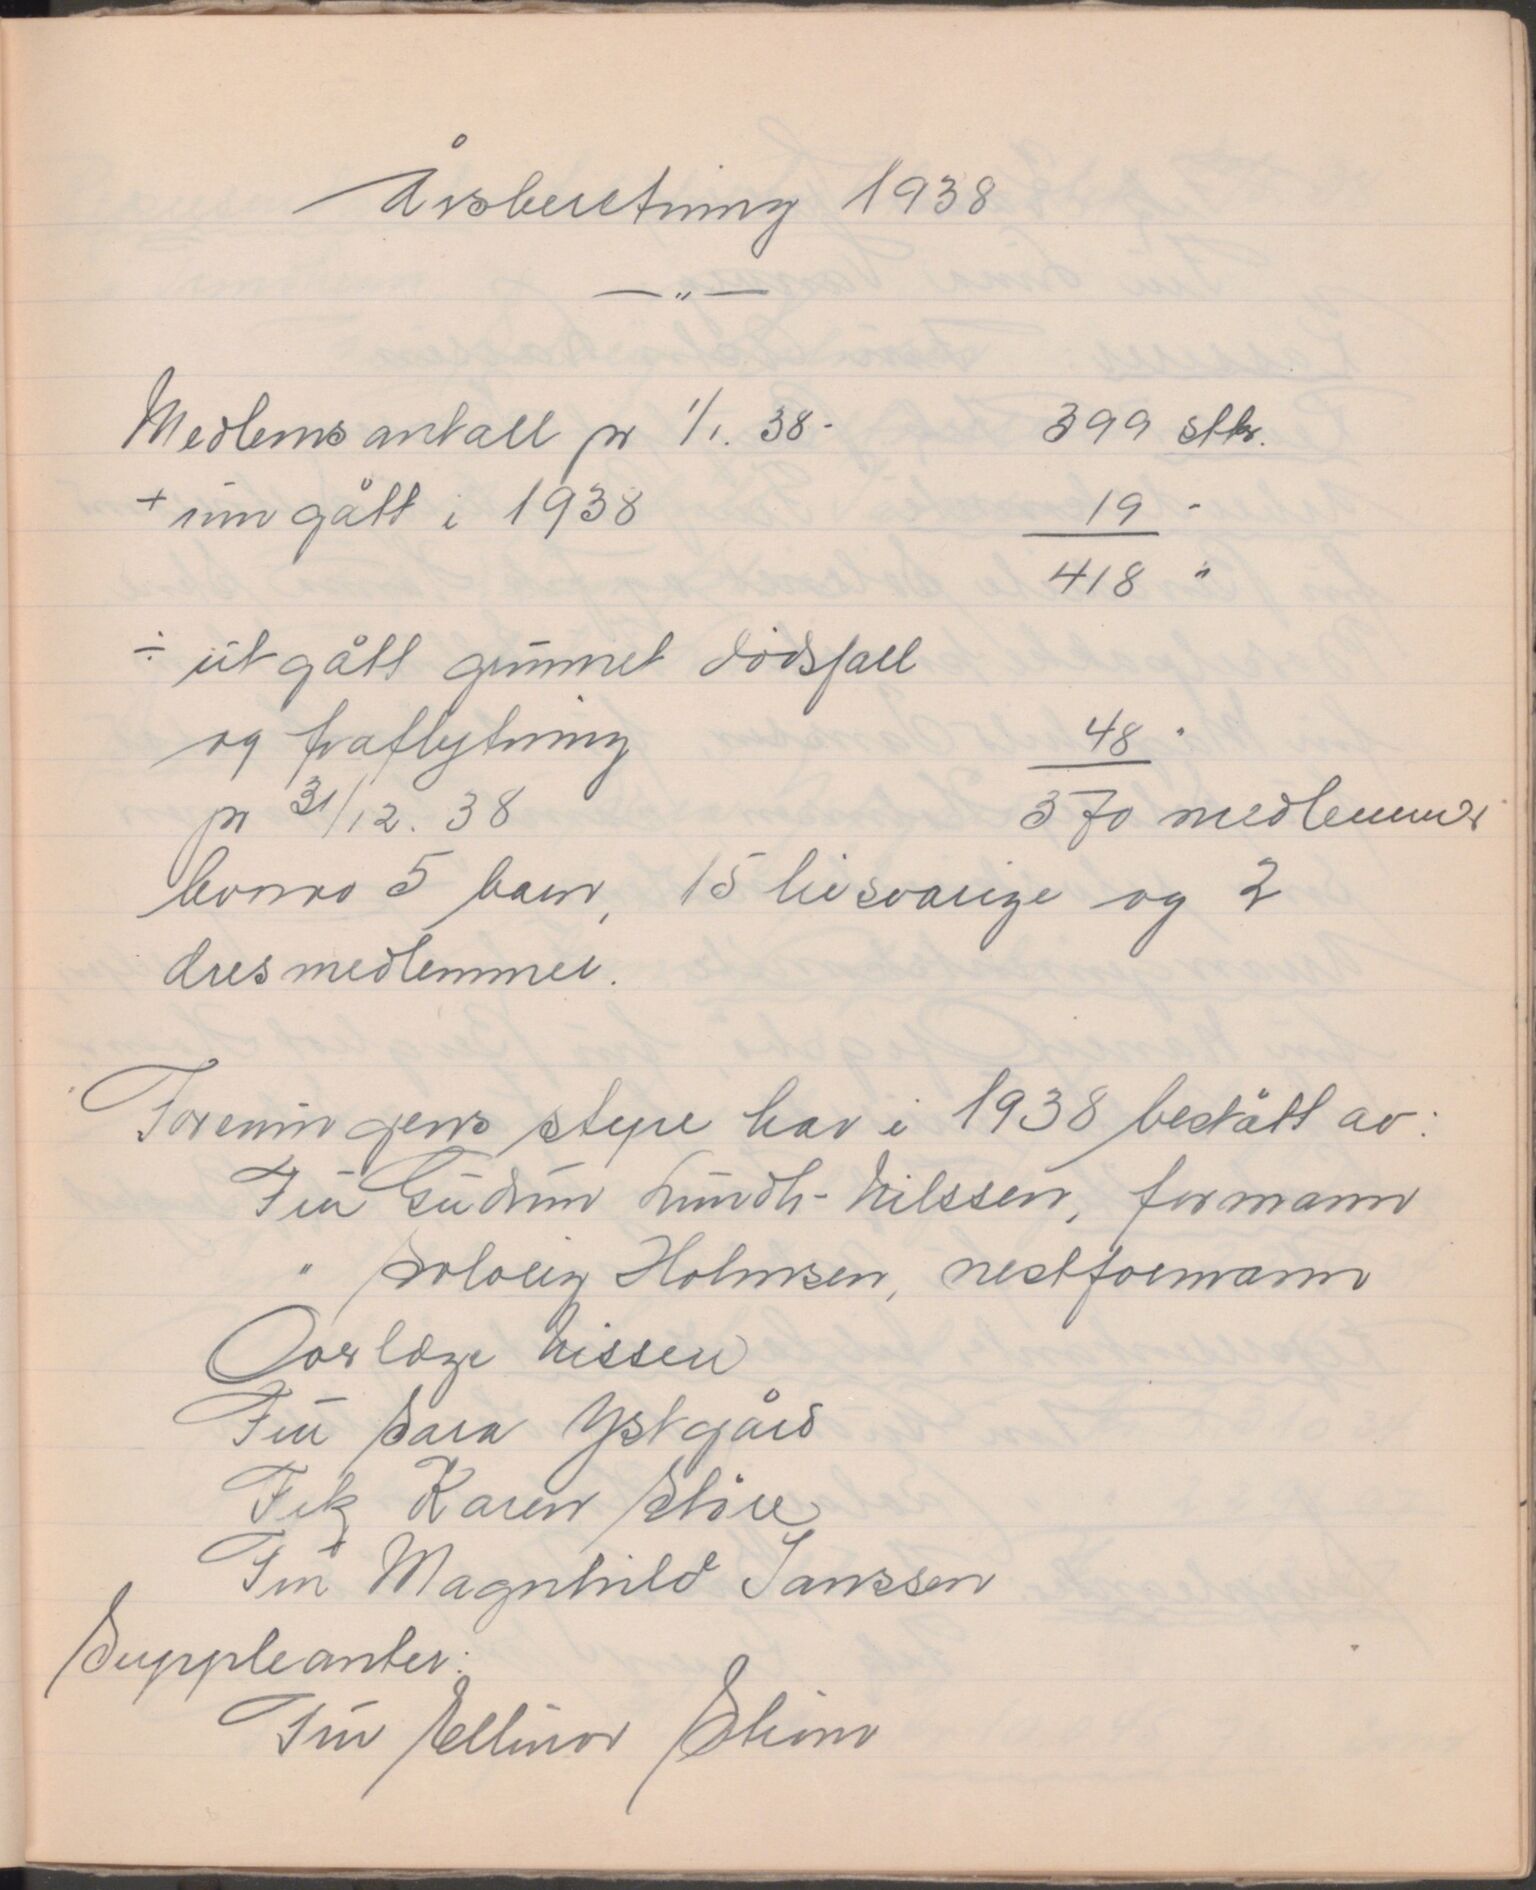 Årsberetning 1938
— " —
Medlemsantall pr 1/1. 38. 399 stkr.
+ inngått i 1938 19 "
418 "
÷ utgått grunnet dødsfall
og fraflytning 48 "
pr 31/12. 38 370 medlemmer
hvorav 5 barn, 15 livsvarige og 2
æresmedlemmer.
Foreningens styre har i 1938 bestått av:
Fru Gudrun Lundh-Nilssen, formann
" Solveig Holmsen, nestformann
Overlæge Nissen
Fru Sara Ystgård
Frk Karen Støre
Fru Magnhild Janssen
Suppleanter:
Fru Ellinor